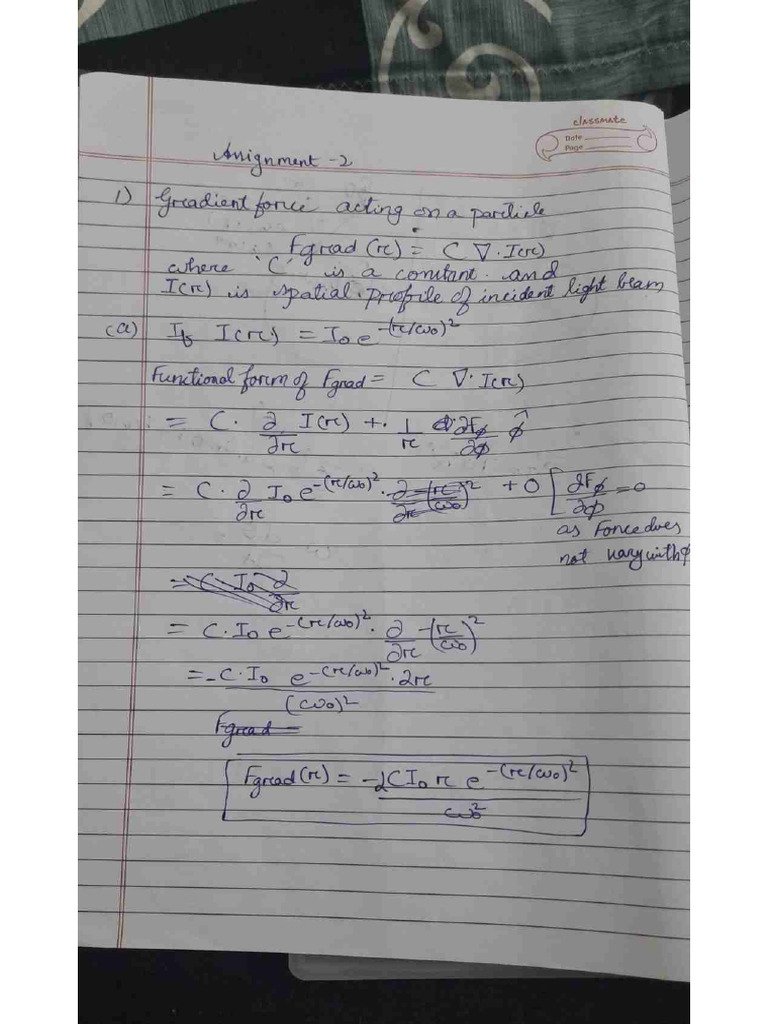 classmate
Date
Page
Assignment -2
1) Gradient force acting on a particle
Fgrad (r) = C ∇· I(r)
where 'C' is a constant and
I(r) is spatial profile of incident light beam
(a) If I(r) = I₀ e^-(r/ω₀)²
Functional form of Fgrad = C ∇· I(r)
= C· ∂/∂r I(r) + 1/r ∂Fφ/∂φ φ̂
= C· ∂/∂r I₀ e^-(r/ω₀)² · ∂/∂r -(r/ω₀)² + 0 [∂Fφ/∂φ = 0
as Force does
not vary with φ
= C I₀ ∂/∂r
= C· I₀ e^-(r/ω₀)² · ∂/∂r -(r/ω₀)²
= -C· I₀ e^-(r/ω₀)² · 2r / (ω₀)²
Fgrad =
Fgrad (r) = -2CI₀ r e^-(r/ω₀)² / ω₀²